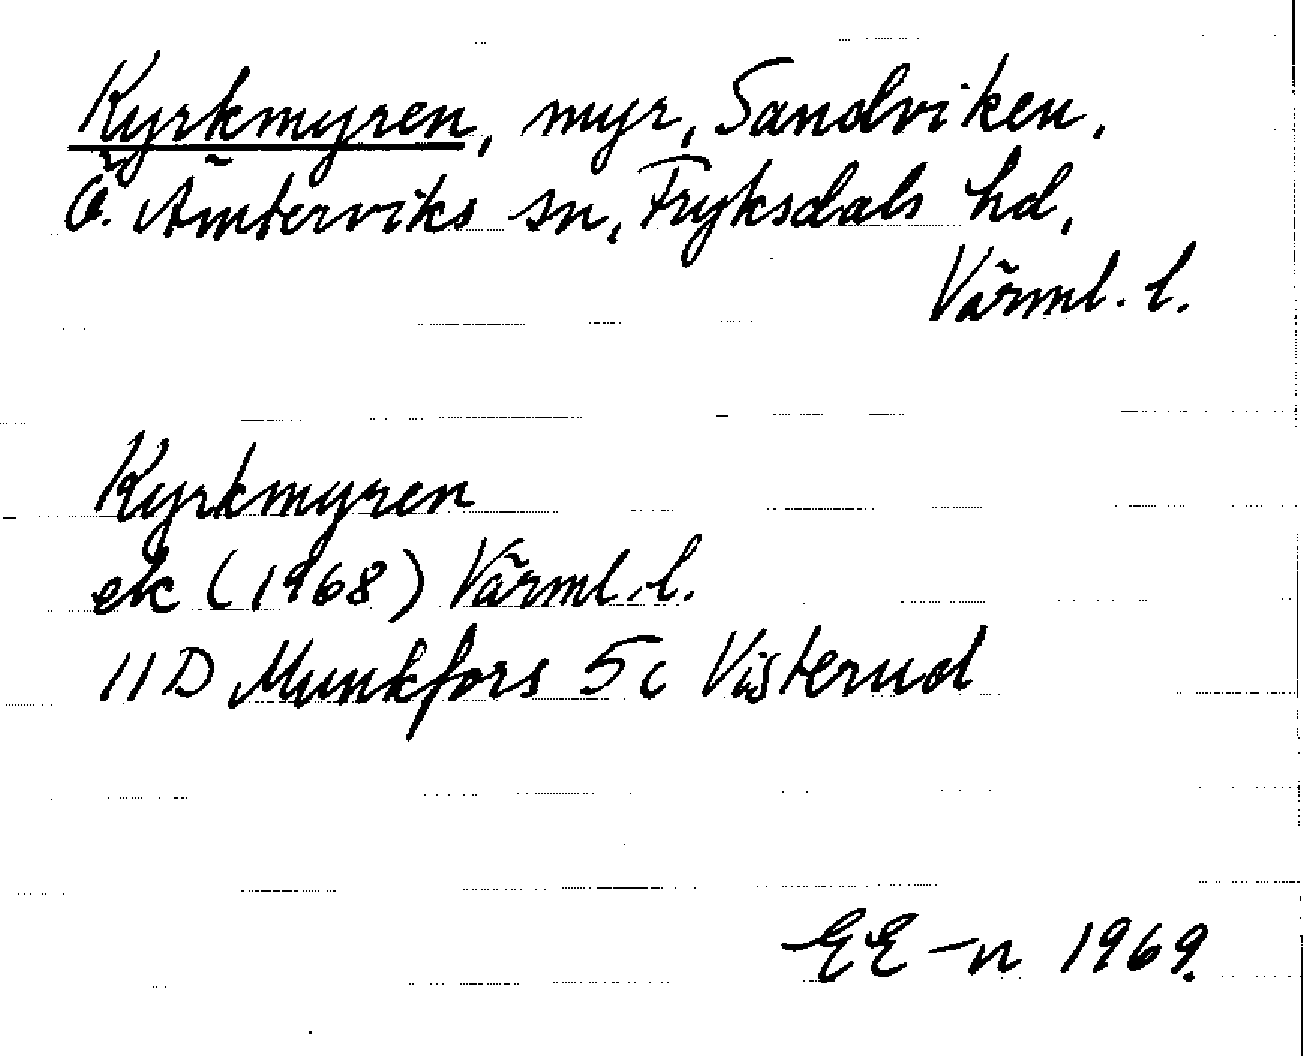 Kyrkmyren, myr, Sandviken,
Ö. Ämterviks sn, Fryksdals hd,
Värml. l.
Kyrkmyren
ek (1968) Värml. l.
11 D Munkfors 5 c Visterud
EE-n 1969.